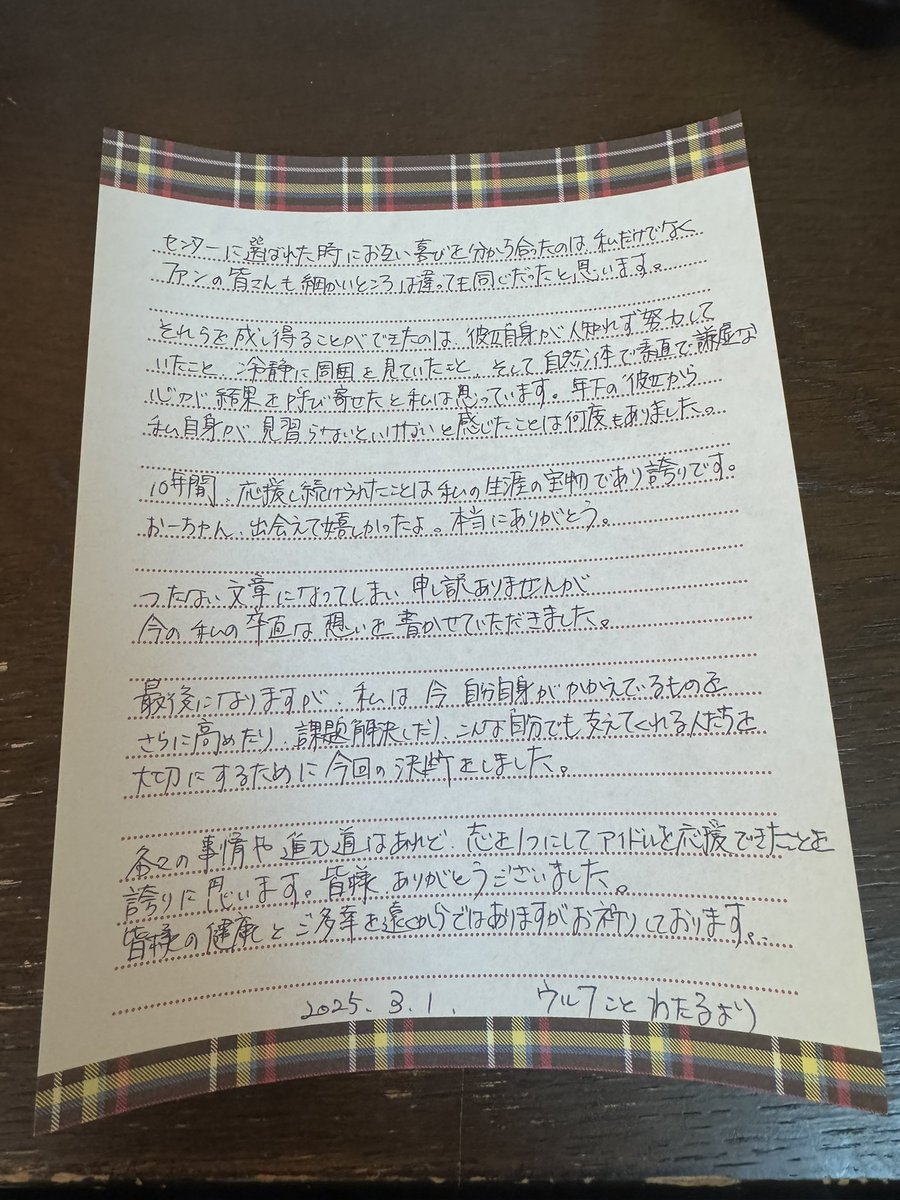 センターに選ばれた時にお互い喜びを分から合ったのは、私だけでなく
ファンの皆さんも細かいところは違っても同じだったと思います。
それらを成し得ることができたのは、彼女自身が人知れず努力して
いたこと、冷静に周囲を見ていたこと、そして自然体で素直で謙虚な
心が結果を呼び寄せたと私は思っています。年下の彼女から
私自身が見習らないといけないと感じたことは何度もありました。
10年間、応援し続けられたことは私の生涯の宝物であり誇りです。
おーちゃん、出会えて嬉しかったよ。本当にありがとう。
つたない文章になってしまい申し訳ありませんが
今の私の率直な想いを書かせていただきました。
最後になりますが、私は今自分自身がかかえているものを
さらに高めたり、課題解決したり、こんな自分でも支えてくれる人たちを
大切にするために今回の決断をしました。
各々の事情や進む道はあれど、心を1つにしてアイドルを応援できたことを
誇りに思います。皆様、ありがとうございました。
皆様の健康とご多幸を遠くからではありますがお祈りしております。
2025.3.1. ウルフことわたるより